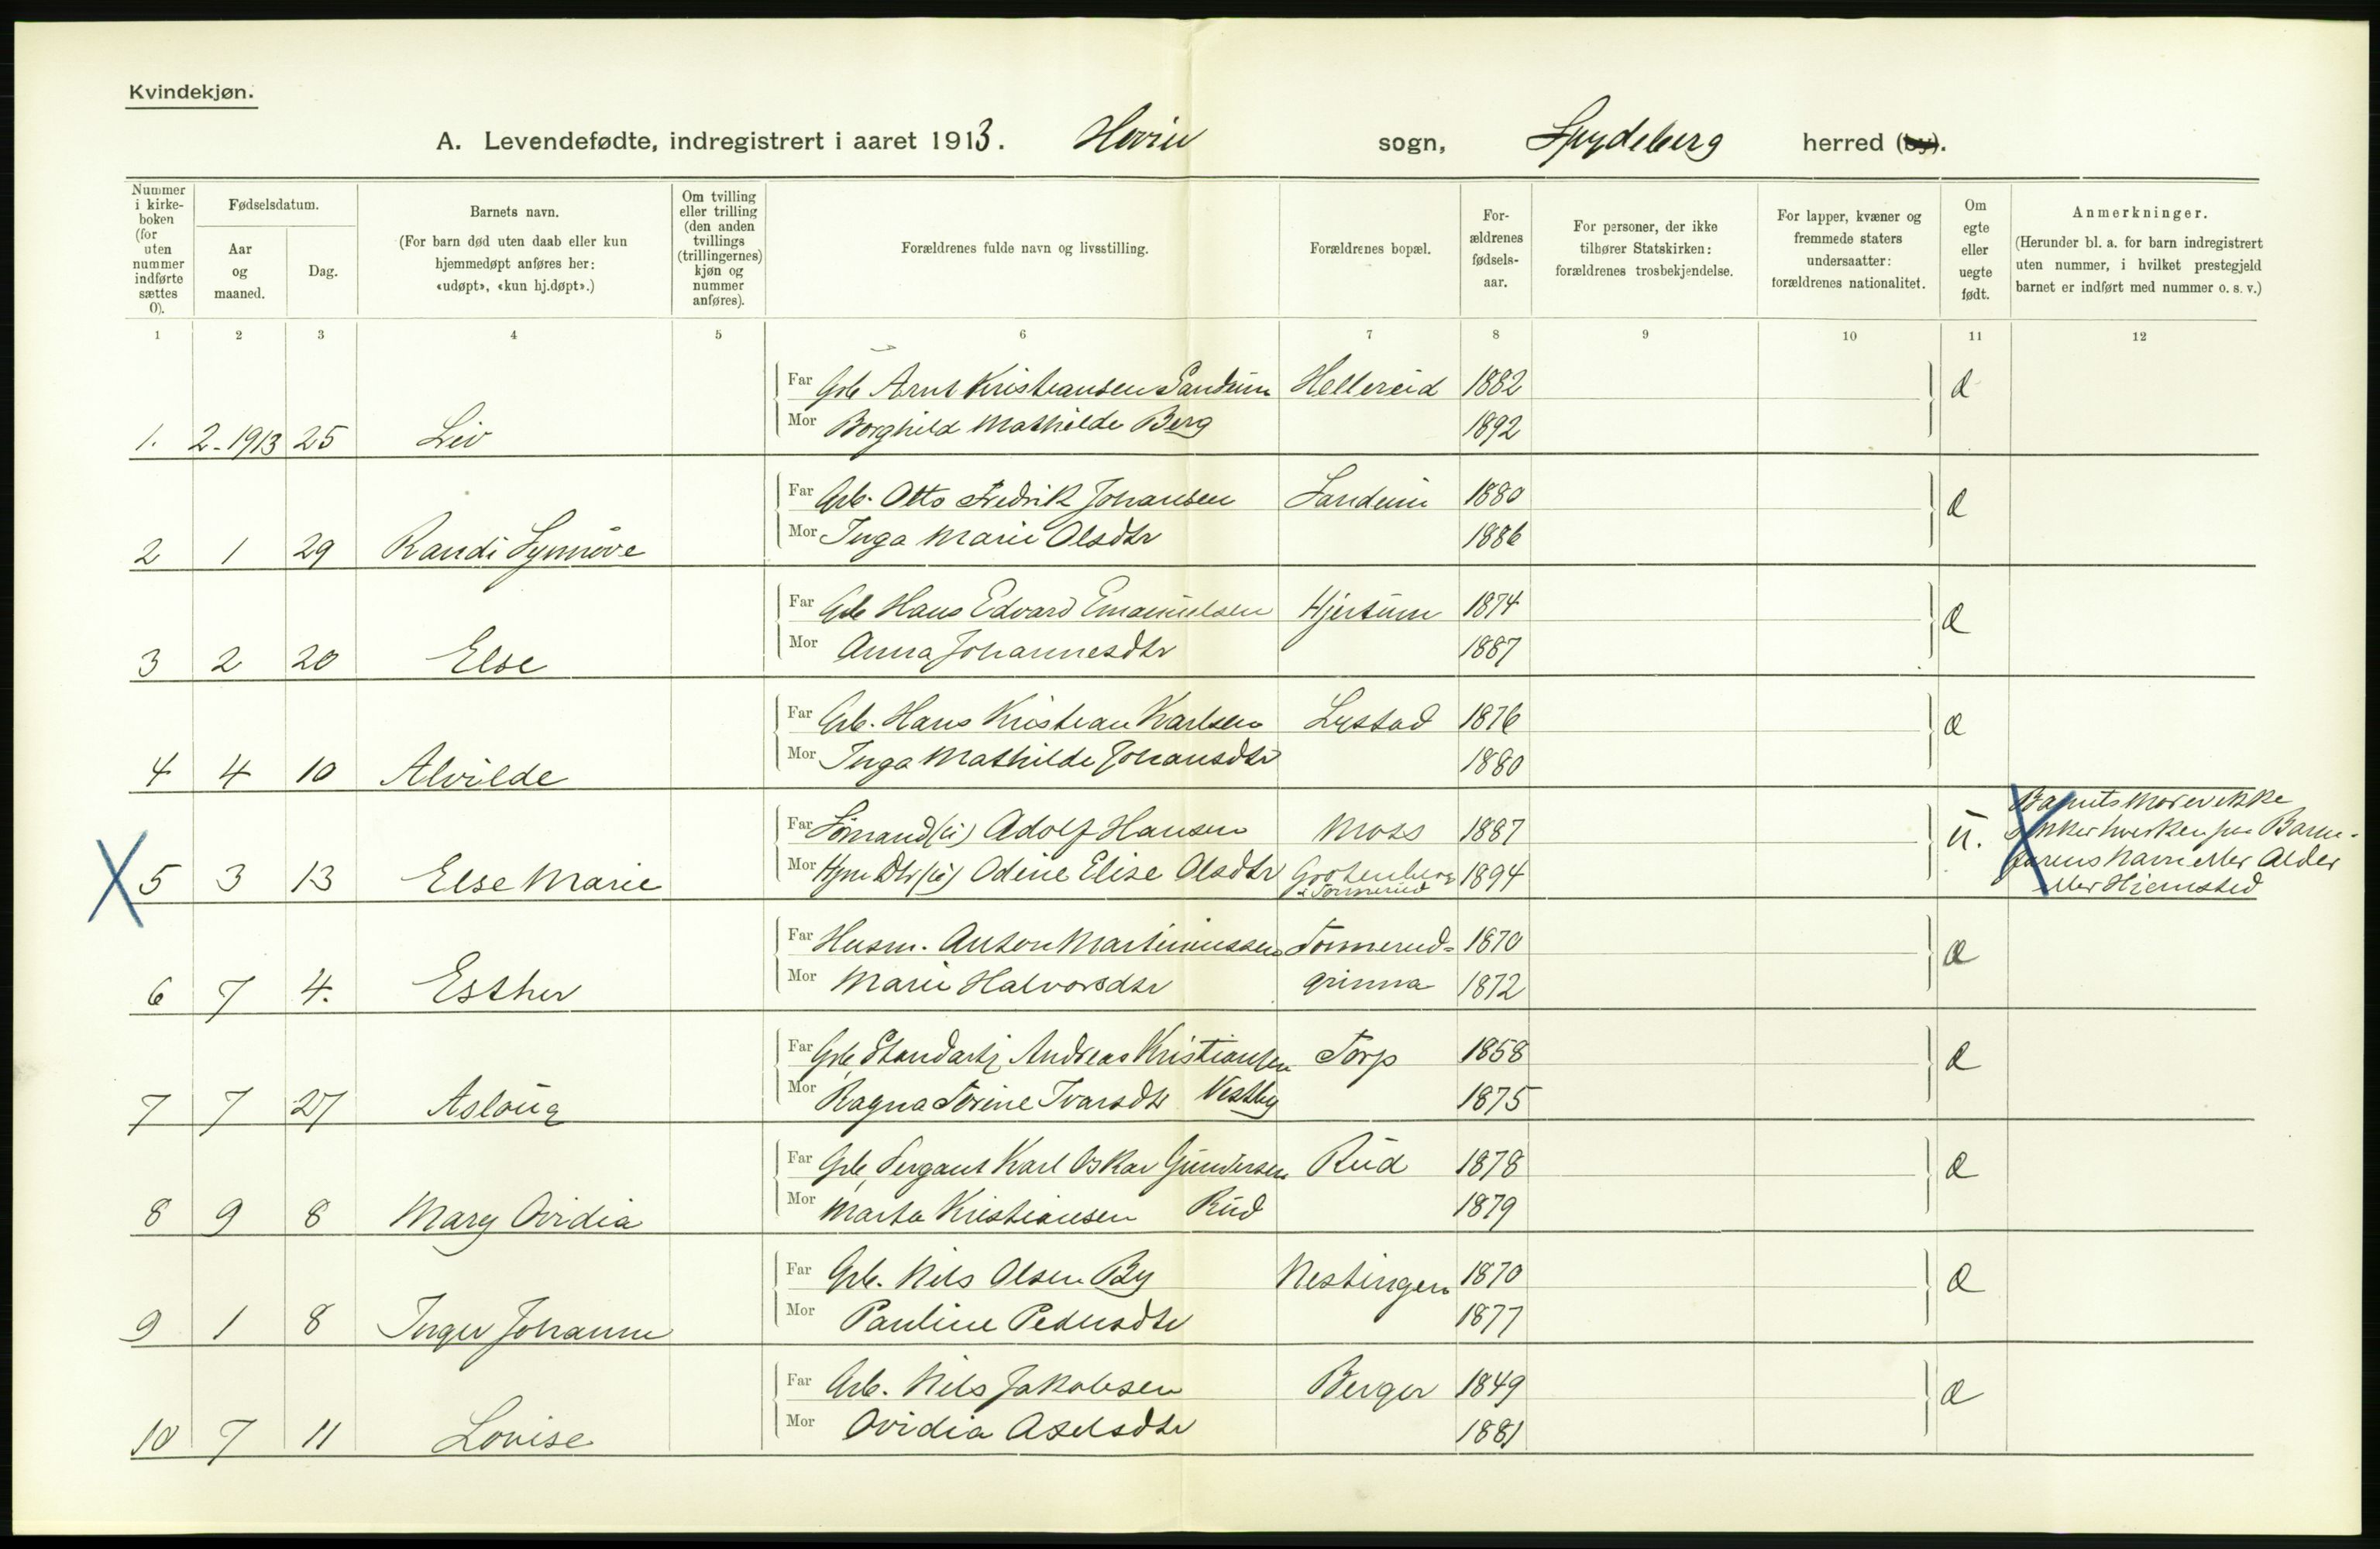 Kvindekjøn.
A. Levendefødte, indregistrert i aaret 1913. Hovin sogn, Spydeberg herred (by).
Nummer i kirke-boken (for uten nummer indførte sættes 0).
Fødselsdatum.
Aar og maaned.
Dag.
Barnets navn.
(For barn død uten daab eller kun hjemmedøpt anføres her: «udøpt», «kun hj.døpt».)
Om tvilling eller trilling (den anden tvillings (trillingernes) kjøn og nummer anføres).
Forældrenes fulde navn og livsstilling.
Forældrenes bopæl.
For-ældrenes fødsels-aar.
For personer, der ikke tilhører Statskirken: forældrenes trosbekjendelse.
For lapper, kvæner og fremmede staters undersaatter: forældrenes nationalitet.
Om egte eller uegte født.
Anmerkninger.
(Herunder bl. a. for barn indregistrert uten nummer, i hvilket prestegjeld barnet er indført med nummer o. s. v.)
1 2 3 4 5 6 7 8 9 10 11 12
Far Grb Arnt Kristiansen Sandum Hellereid 1882
Mor Borghild Mathilde Berg 1892
1. 2-1913 25 Liv
Far Arb. Otto Fredrik Johansen Sandum 1880
Mor Inga Marie Olsdtr 1886
2 1 29 Randi Synnøve
Far Grb Hans Edvard Emanuelsen Hjertum 1874
Mor Anna Johannesdtr 1887
3 2 20 Else
Far Arb. Hans Kristian Karlsen Lystad 1876
Mor Inga Mathilde Johansdtr 1880
4 4 10 Alvilde
Far Sømand (u) Adolf Hansen Moss 1887 u.
Mor Hjm Dtr (u) Odine Elise Olsdtr Grotenberg u Tømmerud 1894
5 3 13 Else Marie
Barnets Mor er ikke
sikker hverken paa Barne-
farens Navn eller Alder
eller Hjemsted
Far Husm. Anton Martinussen Tømmerud- 1870
Mor Marie Halvorsdtr grinna 1872
6 7 4. Esther
Far Grb Standartj Andreas Kristiansen Torp 1858
Mor Ragna Torine Ivarsdtr Vestby 1875
7 7 27 Aslaug
Far Grb, Sergant Karl Oskar Gundersen Rud 1878
Mor Marta Kristiansen Rud 1879
8 9 8 Mary Ovidia
Far Grb. Nils Olsen By Nestingen 1870
Mor Pauline Pedersdtr 1877
9 1 8 Inger Johanne
Far Arb. Nils Jakobsen Berger 1849
Mor Ovidia Axelsdtr 1881
10 7 11 Lovise